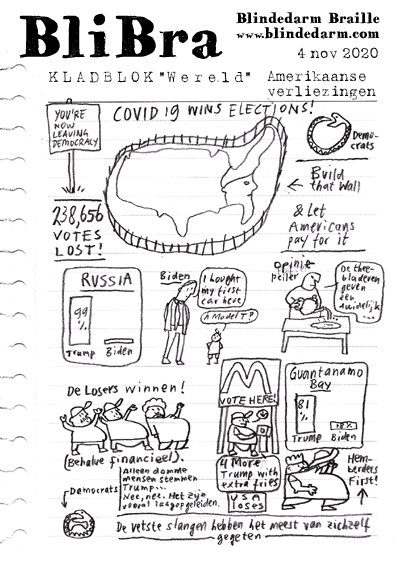 BliBra
Blindedarm Braille
www.blindedarm.com
4 nov 2020
KLADBLOK "Wereld"
Amerikaanse
verliezingen
COVID 19 WINS ELECTIONS!
YOU'RE
NOW
LEAVING
DEMOCRACY
Demo-
crats
Build
that Wall
& Let
Americans
pay for it
238,656
VOTES
LOST!
RUSSIA
99
%
Trump
Biden
Biden
I bought
my first
car here
A Model T?
Opinie
peiler
De thee-
bladeren
geven
één
duidelijk
...
De Losers winnen!
(Behalve financieel).
M
VOTE HERE!
4 More
Trump with
extra fries
USA
loses
Guantanamo
Bay
81
%
Trump
18%
Biden
Ham-
berders
First!
Democrats
Alleen domme
mensen stemmen
Trump...
Nee, nee. Het zijn
vooral laagopgeleiden.
De vetste slangen hebben het meest van zichzelf
gegeten